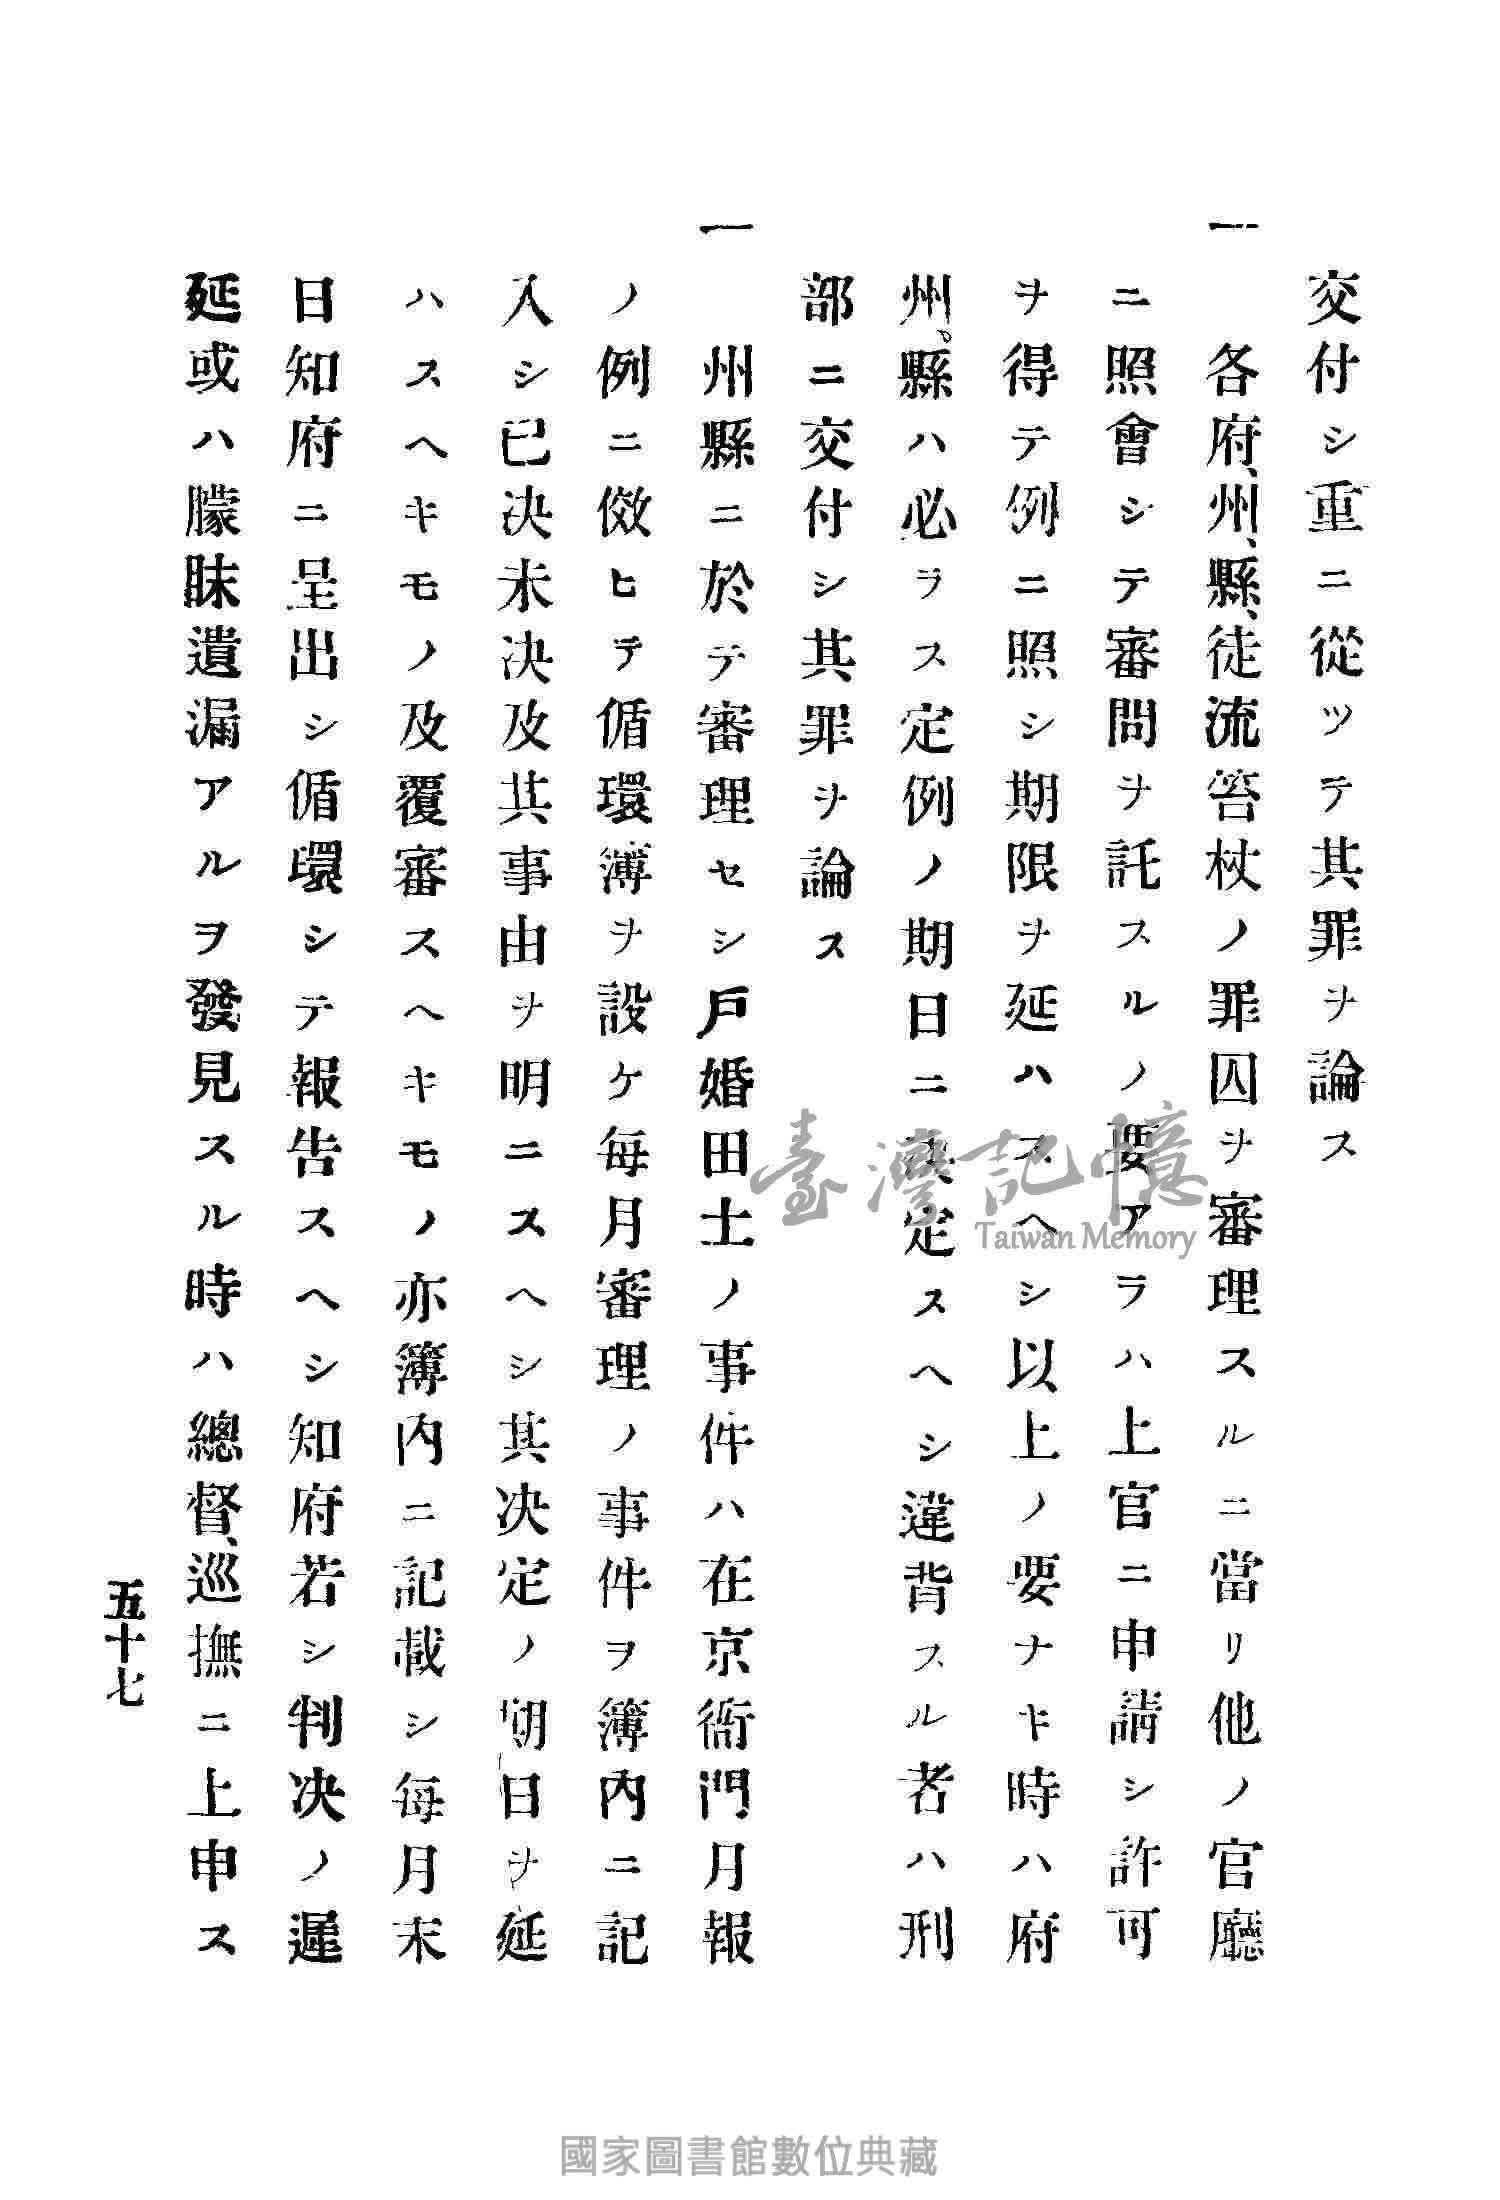 交付シ重ニ從ツテ其罪ヲ論ス
一 各府、州、縣、徒流笞杖ノ罪囚ヲ審理スルニ當リ他ノ官廳
ニ照會シテ審問ヲ託スルノ要アラハ上官ニ申請シ許可
ヲ得テ例ニ照シ期限ヲ延ハスヘシ以上ノ要ナキ時ハ府
州、縣ハ必ラス定例ノ期日ニ決定スヘシ違背スル者ハ刑
部ニ交付シ其罪ヲ論ス
一 州縣ニ於テ審理セシ戶婚田土ノ事件ハ在京衙門月報
ノ例ニ傚ヒテ循環簿ヲ設ケ每月審理ノ事件ヲ簿內ニ記
入シ已決未決及其事由ヲ明ニスヘシ其決定ノ期日ヲ延
ハスヘキモノ及覆審スヘキモノ亦簿內ニ記載シ每月末
日知府ニ呈出シ循環シテ報告スヘシ知府若シ判決ノ遲
延或ハ朦眛遺漏アルヲ發見スル時ハ總督、巡撫ニ上申ス
五十七
臺灣記憶
Taiwan Memory
國家圖書館數位典藏